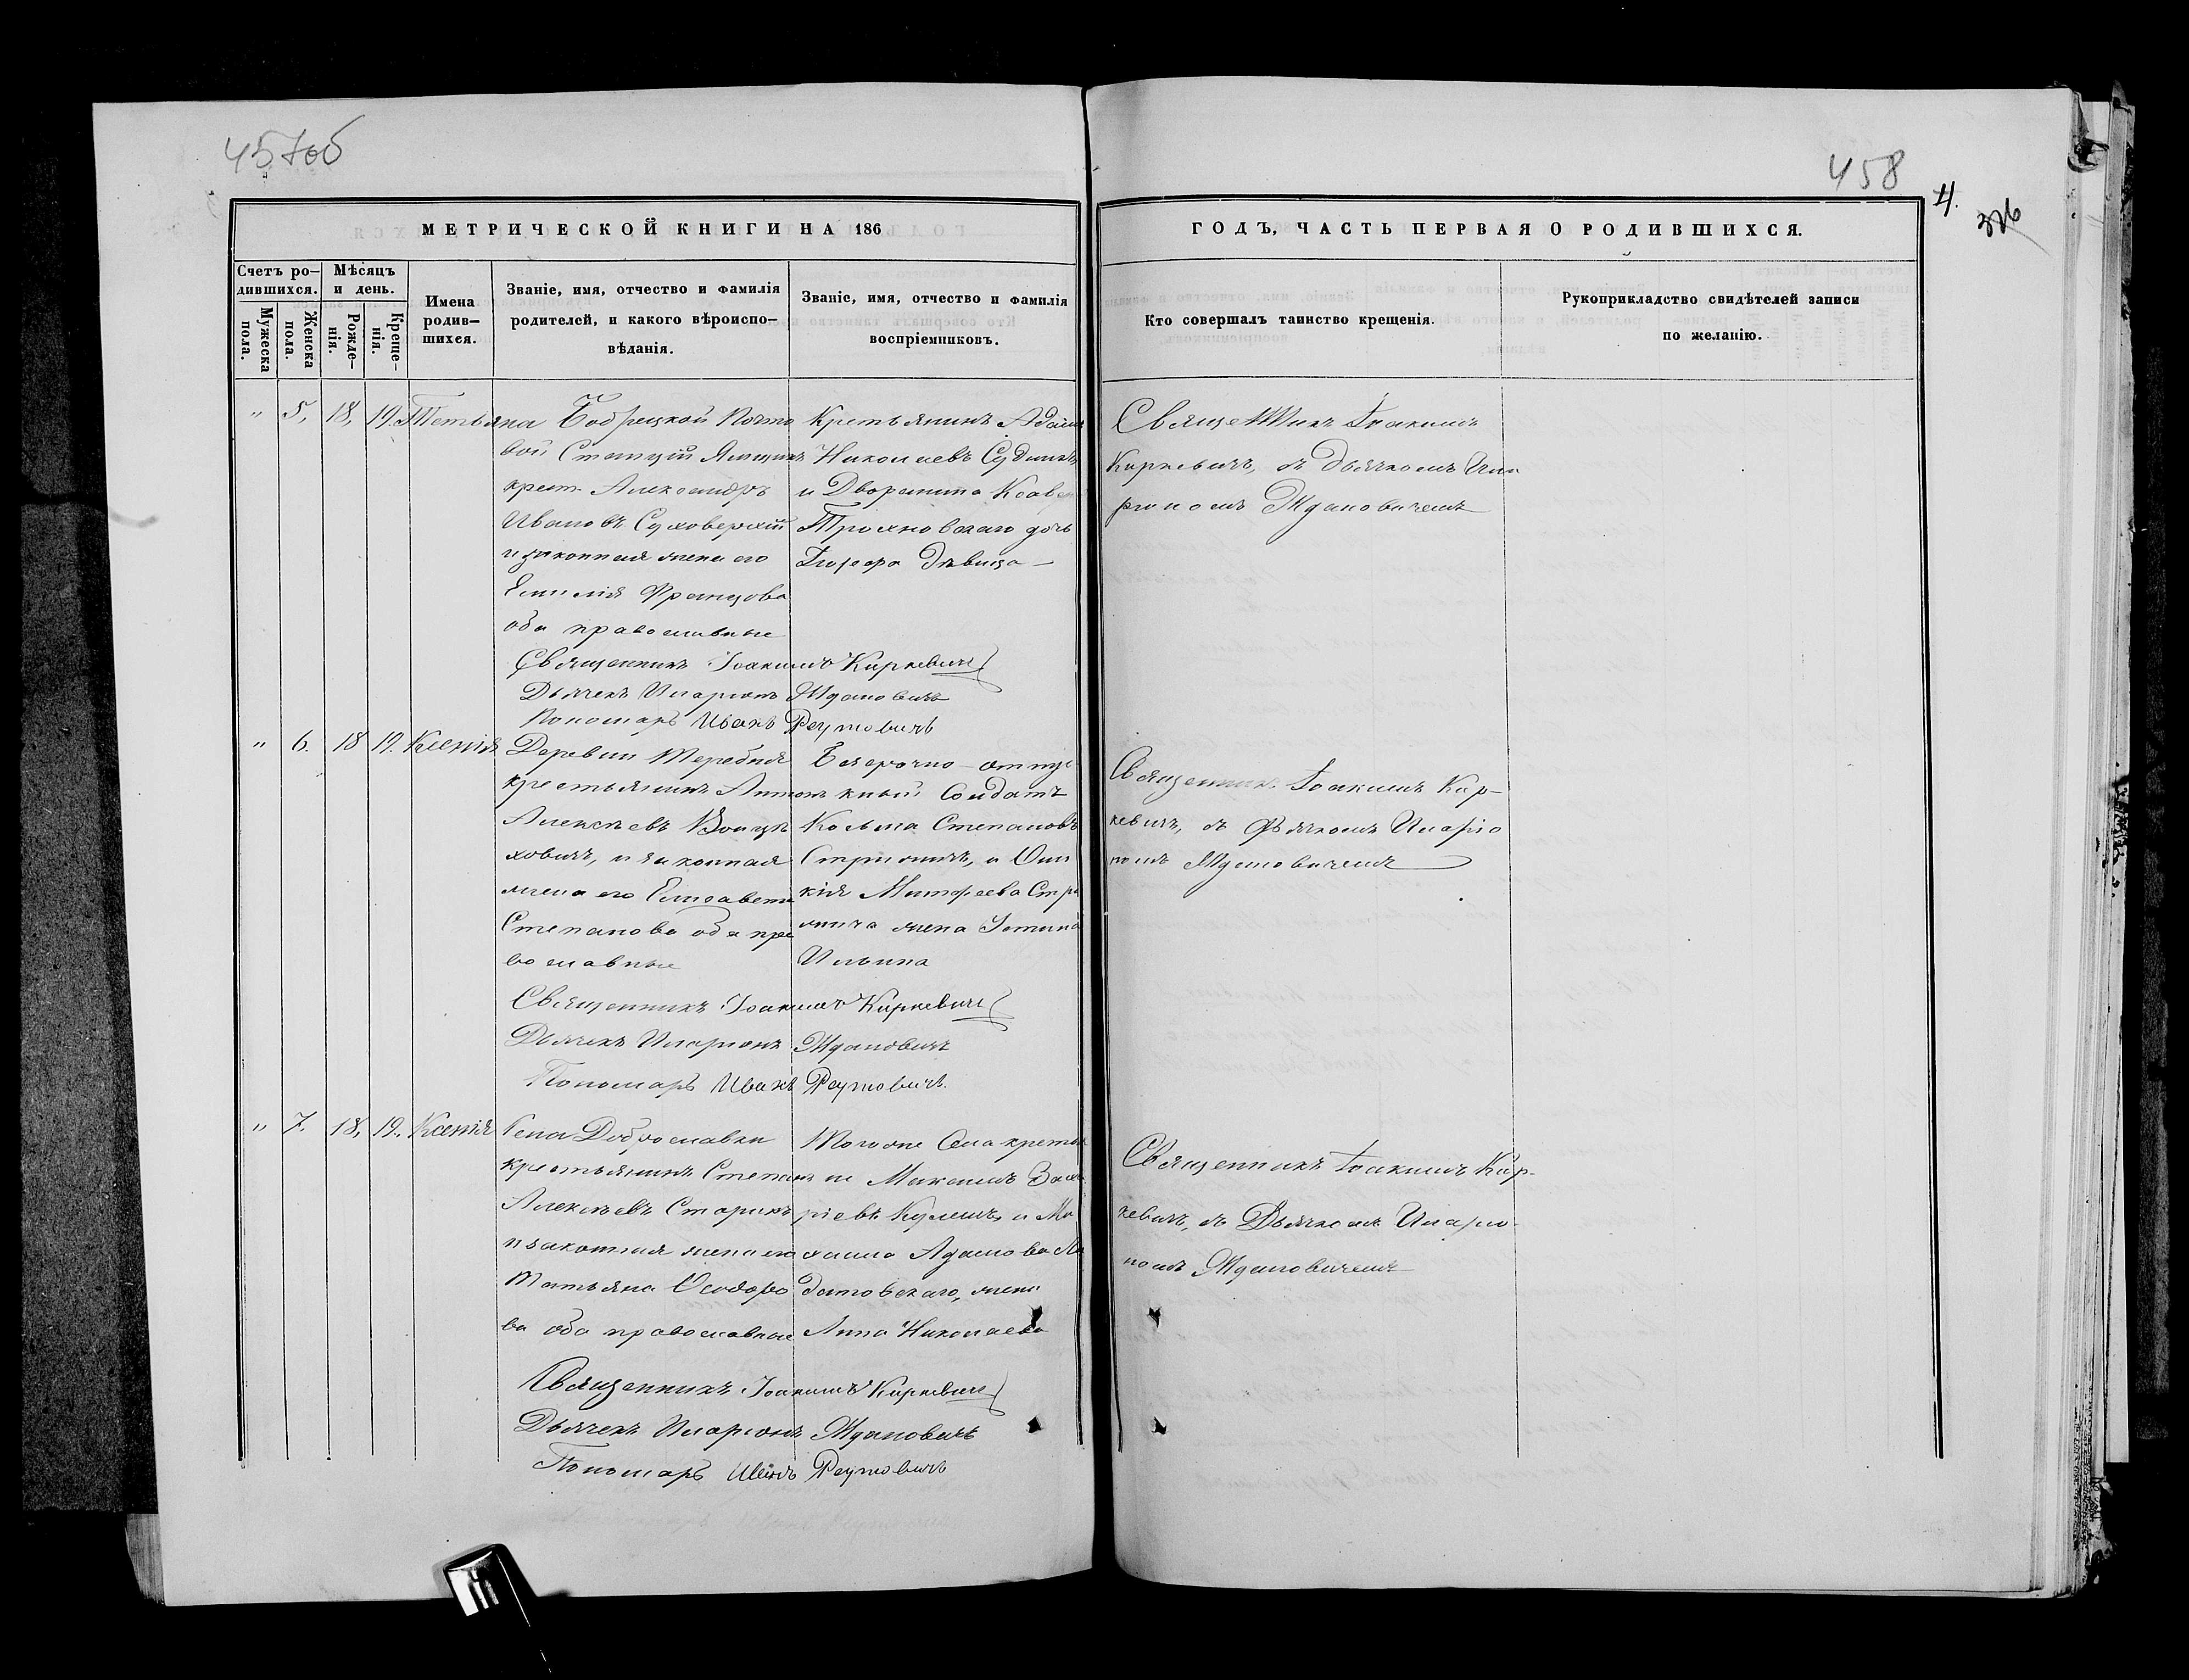 457об
458
4.
МЕТРИЧЕСКОЙ КНИГИ НА 186
ГОДЪ, ЧАСТЬ ПЕРВАЯ О РОДИВШИХСЯ.
Счетъ ро-
дившихся.
Мужеска
пола.
Женска
пола.
Мѣсяцъ
и день.
Рожде-
нія.
Креще-
нія.
Имена
родив-
шихся.
Званіе, имя, отчество и фамилія
родителей, и какого вѣроиспо-
вѣданія.
Званіе, имя, отчество и фамилія
воспріемниковъ.
Кто совершалъ таинство крещенія.
Рукоприкладство свидѣтелей записи
по желанію.
" 5, 18, 19. Тетьяна
Почто
вой Станціи Ямщикъ
крест. Александръ
Ивановъ
и законная жена его
Емилія Францова
оба православные
Крестьянинъ Адамъ
Николаевъ
и Дворянина
дочь
дѣвица
Священникъ Іоакимъ
Киркевичъ, съ дьячкомъ Ила
ріономъ Ждановичемъ
Священникъ Іоакимъ Киркевичъ
Дьячекъ Иларіонъ Ждановичъ
Пономарь Иванъ Реутовичъ
" 6. 18 19. Ксенія
Деревни Теребня
крестьянинъ Антонъ
Алексѣевъ Войцѣ
ховичъ, и законная
жена его Елисавета
Степанова оба пра
вославные
Безсрочно-отпус
кный Солдатъ
Козьма Степановъ
жена
Ильина
Священникъ Іоакимъ Кир-
кевичъ, съ Дьячкомъ Иларіо
номъ Ждановичемъ
Священникъ Іоакимъ Киркевичъ
Дьячекъ Иларіонъ Ждановичъ
Пономарь Иванъ Реутовичъ.
" 7. 18, 19. Ксенія
Села Доброславки
крестьянинъ Степанъ
Алексѣевъ
и законная жена его
Татьяна Ѳеодоро
ва оба православные
Того же Села крестья
Максимъ Заха
ріевъ Кулешъ, и Ми
хаила Адамова
жена
Анна Николаева
Священникъ Іоакимъ Кир-
кевичъ, съ Дьячкомъ Иларіо
номъ Ждановичемъ
Священникъ Іоакимъ Киркевичъ
Дьячекъ Иларіонъ Ждановичъ
Пономарь Иванъ Реутовичъ